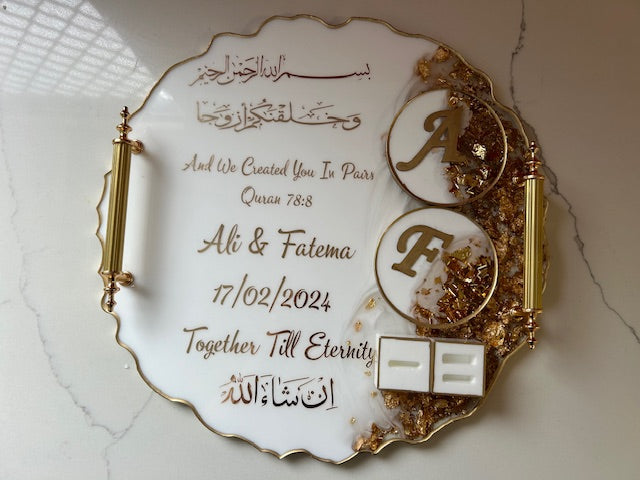 بسم الله الرحمن الرحيم
وخلقنكم ازوجا
And We Created You In Pairs
Quran 78:8
Ali & Fatema
17/02/2024
Together Till Eternity
إن شاء الله
A
F